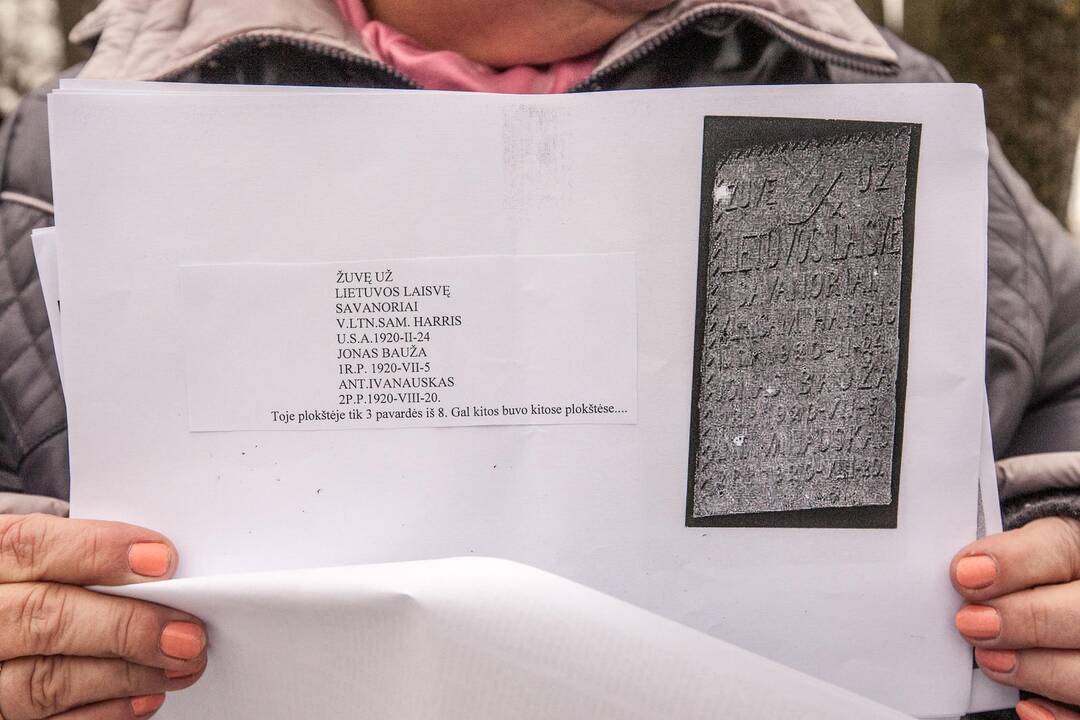 ŽUVĘ UŽ
LIETUVOS LAISVĘ
SAVANORIAI
V.LTN.SAM. HARRIS
U.S.A.1920-II-24
JONAS BAUŽA
1R.P. 1920-VII-5
ANT.IVANAUSKAS
2P.P.1920-VIII-20.
Toje plokštėje tik 3 pavardės iš 8. Gal kitos buvo kitose plokštėse....
ŽUVĘ UŽ
LIETUVOS LAISVĘ
SAVANORIAI
HARRIS